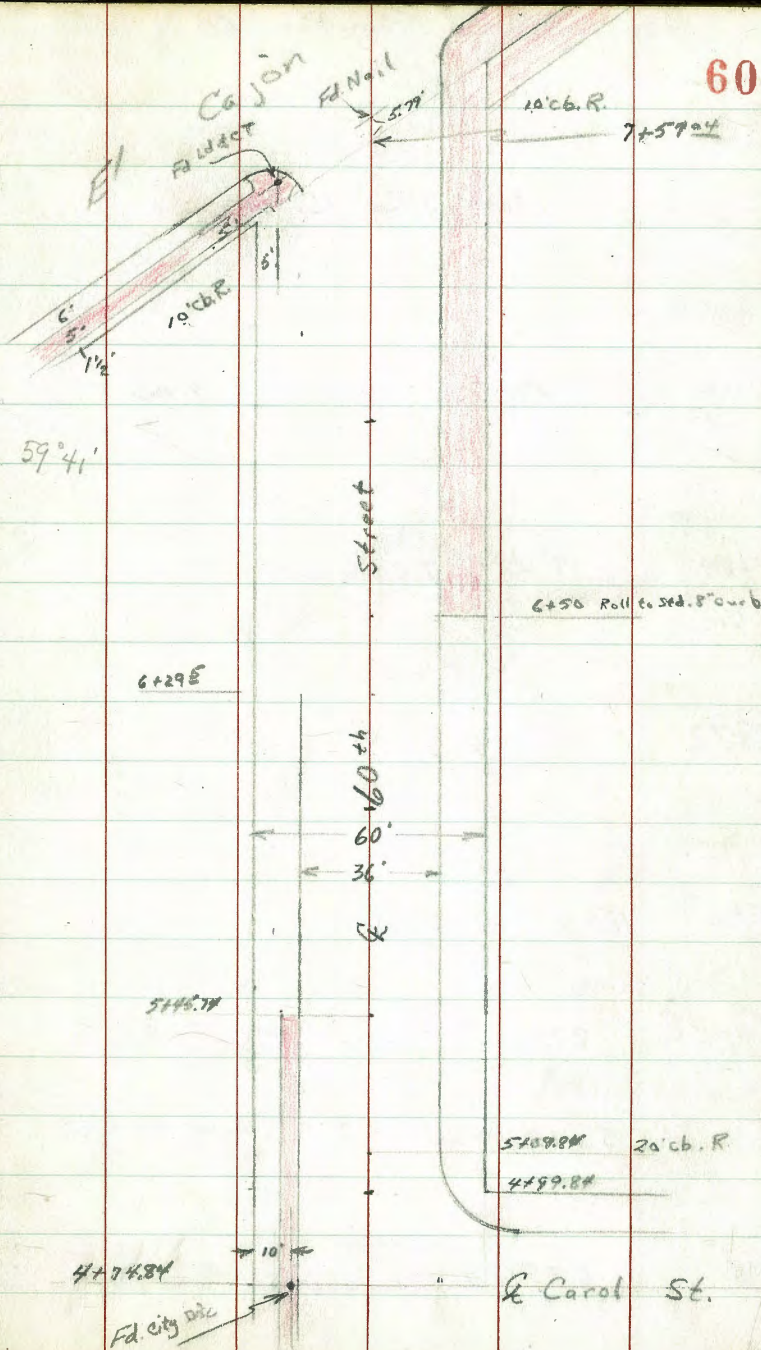 60
Cajon
Fd. Nail
5.79'
10' cb. R.
7+57 04
Fd Ld & T
El
5'
5'
10' cb. R.
6'
5'
1 1/2'
59° 41'
Street
6+50 Roll to Std. 8" curb
6+29 5
60th
60'
36'
℄
5+45.74
5+09.84 20' cb. R.
4+99.84
10'
4+74.84
℄ Carol St.
Fd. City Disc